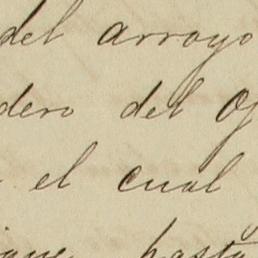 del arroyo
dero del
el cual
hasta